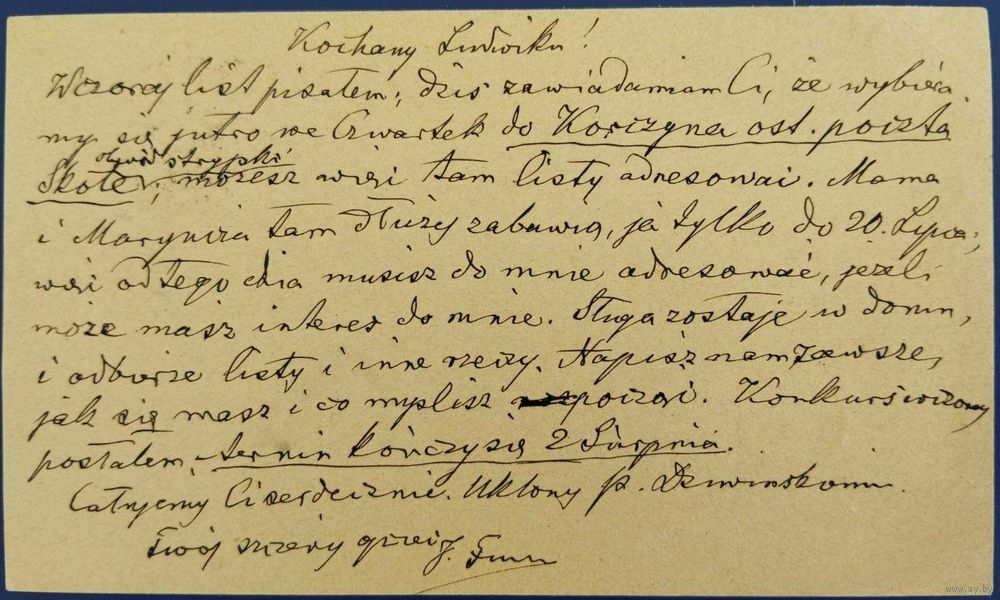 Kochany Ludwiku!
Wczoraj list pisałem, dziś zawiadamiam Ci, że wybiera
my się jutro we Czwartek do Korczyna ost. poczta
obwód stryjski
Skole, możesz więc tam listy adresować. Mama
i Marynia tam dłużej zabawią, ja tylko do 20. Lipca,
więc od tego dnia musisz do mnie adresować, jeżeli
może masz interes do mnie. Sługa zostaje w domu,
i odbierze listy i inne rzeczy. Napisz nam zawsze,
jak się masz i co myślisz począć. Kurs wczoraj
posłałem, termin kończy się 2 Sierpnia.
Całujemy Ci serdecznie. Ukłony p.
Twój szczery
www.ay.by